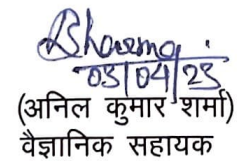 Sharma
03/04/23
(अनिल कुमार शर्मा)
वैज्ञानिक सहायक